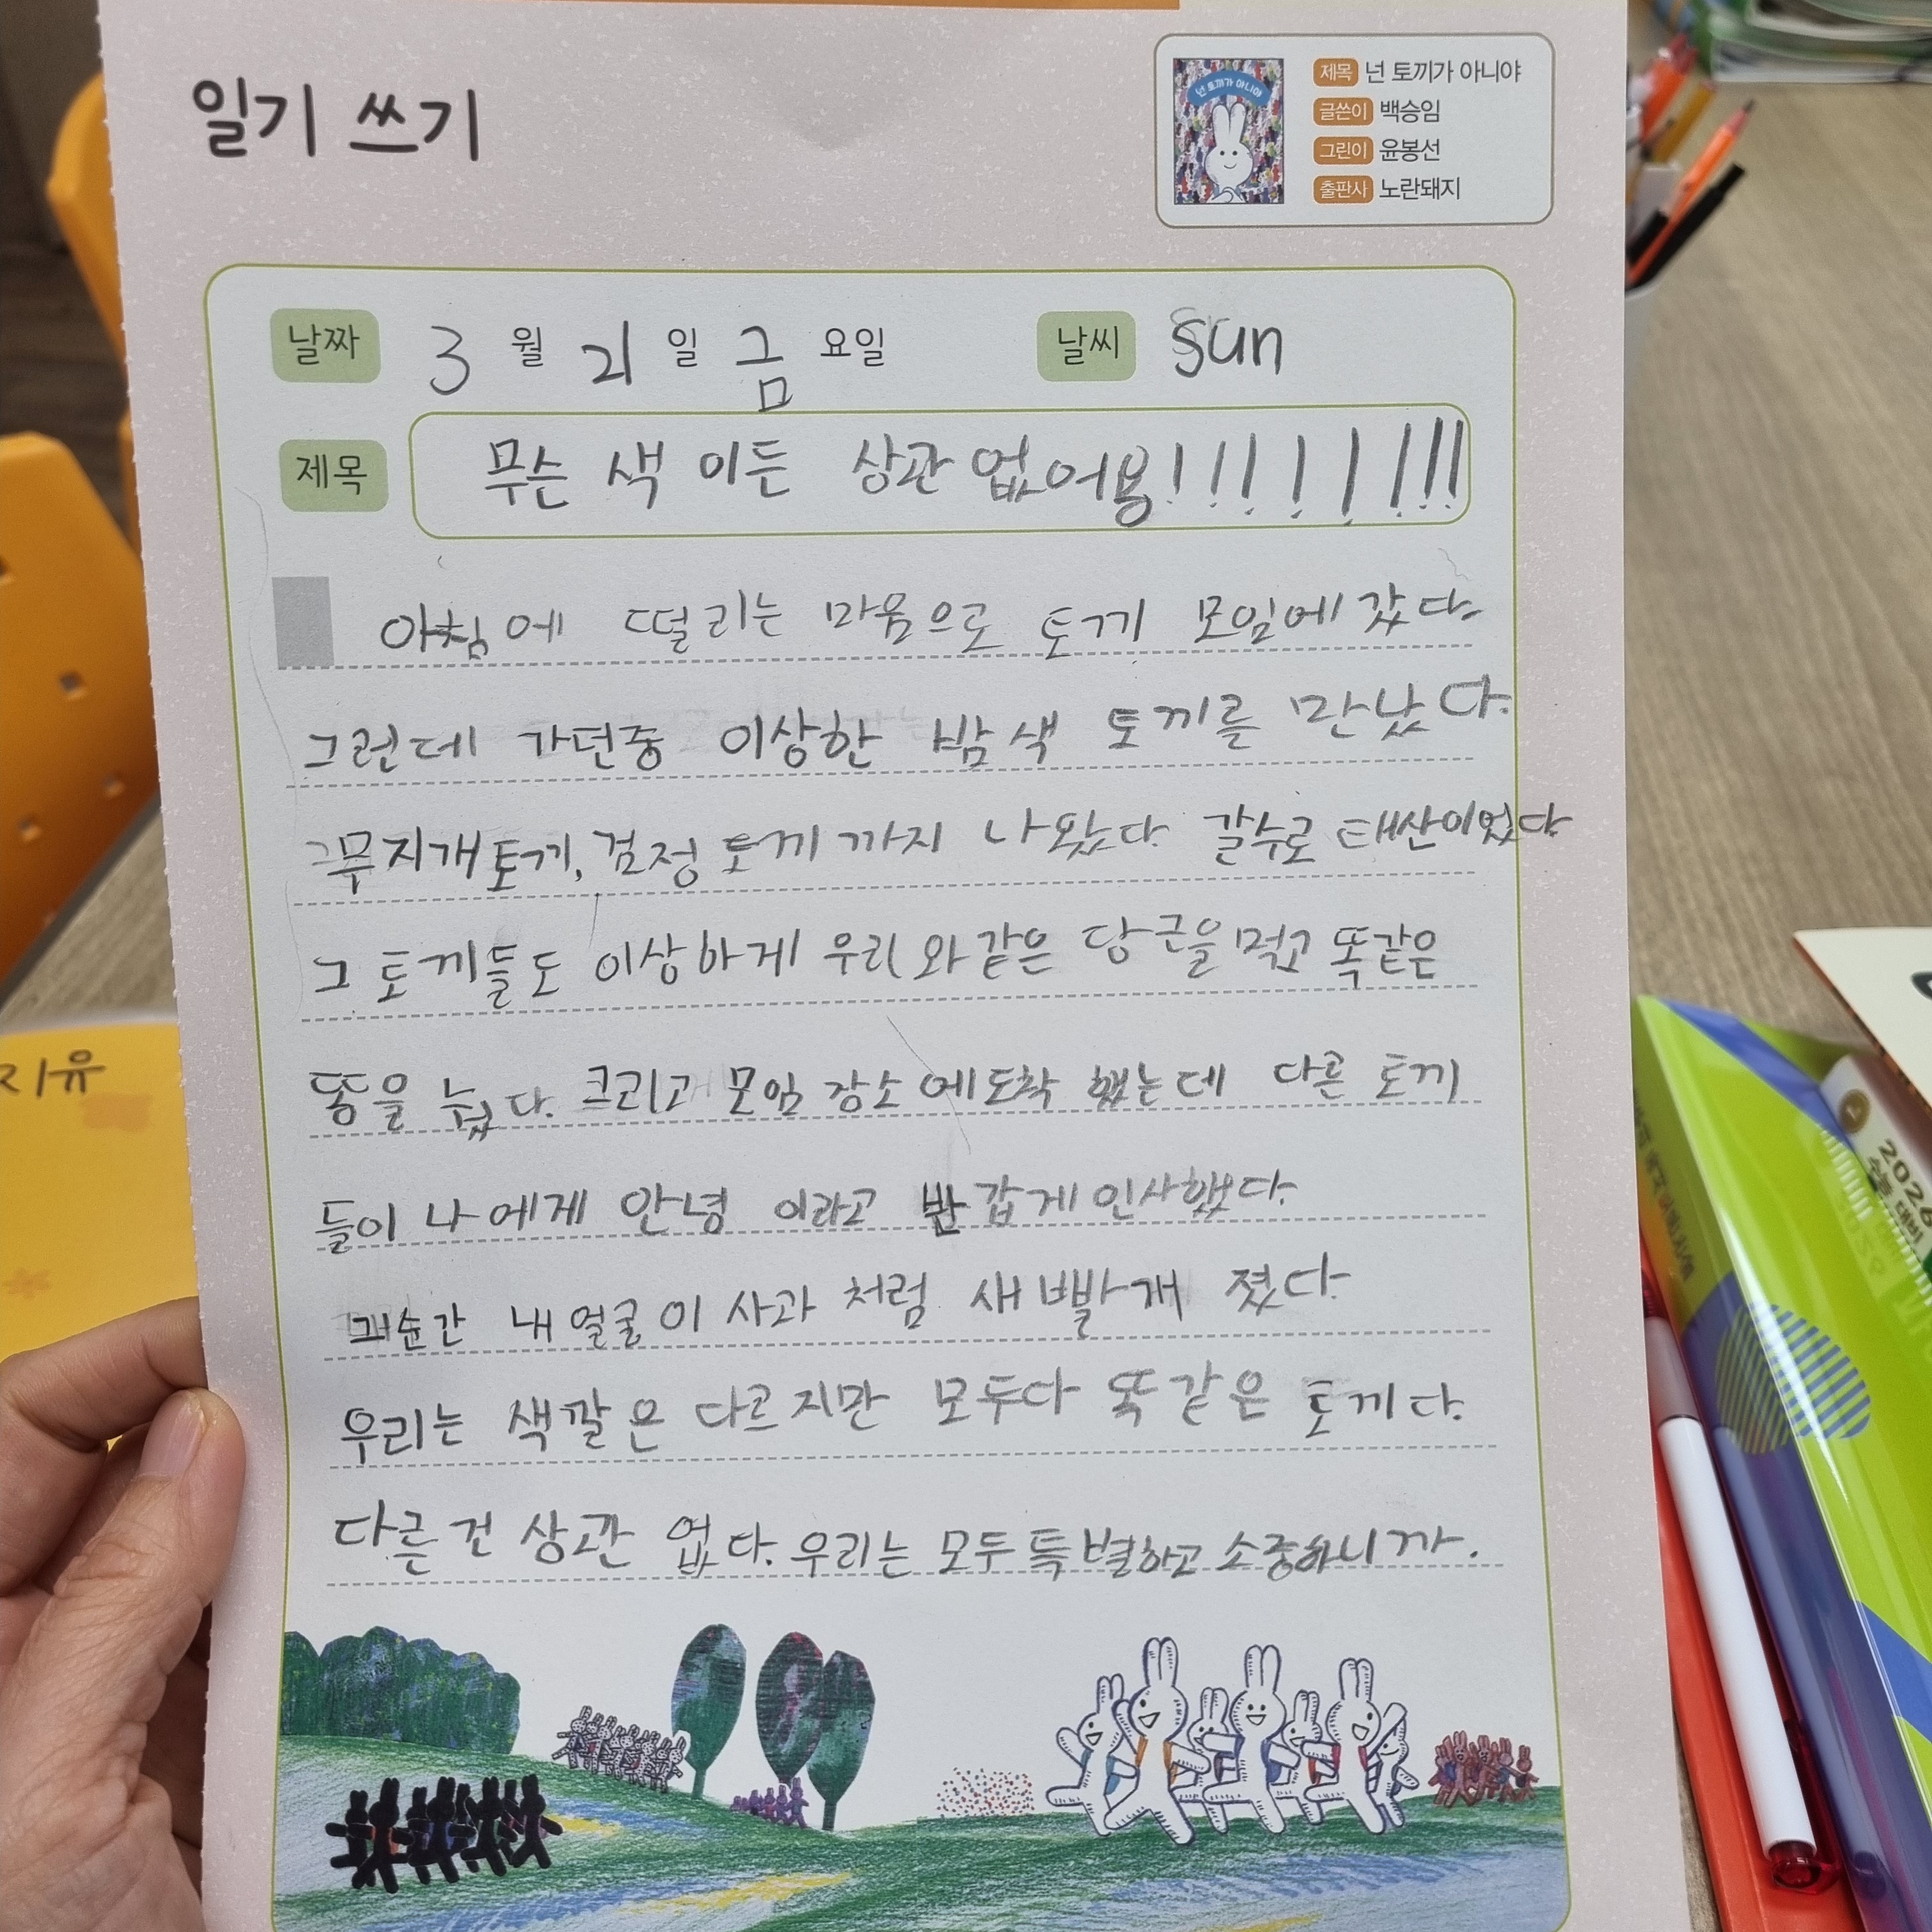 일기 쓰기
넌 토끼가 아니야
제목 넌 토끼가 아니야
글쓴이 백승임
그린이 윤봉선
출판사 노란돼지
날짜 3 월 21 일 금 요일 날씨 sun
제목 무슨 색 이든 상관 없어용!!!!!!!!
아침에 떨리는 마음으로 토끼 모임에 갔다.
그런데 가던중 이상한 밤색 토끼를 만났다.
무지개토끼, 검정 토끼 까지 나왔다. 갈수로 태산이었다
그 토끼들도 이상하게 우리와같은 당근을먹고 똑같은
똥을 눴다. 그리고 모임 장소에도착 했는데 다른 토끼
들이 나에게 안녕 이라고 반갑게 인사했다.
그순간 내 얼굴이 사과 처럼 새빨개 졌다.
우리는 색깔은 다르지만 모두다 똑같은 토끼다.
다른건 상관 없다. 우리는 모두 특별하고 소중하니까.
지유
2026
수능 대비